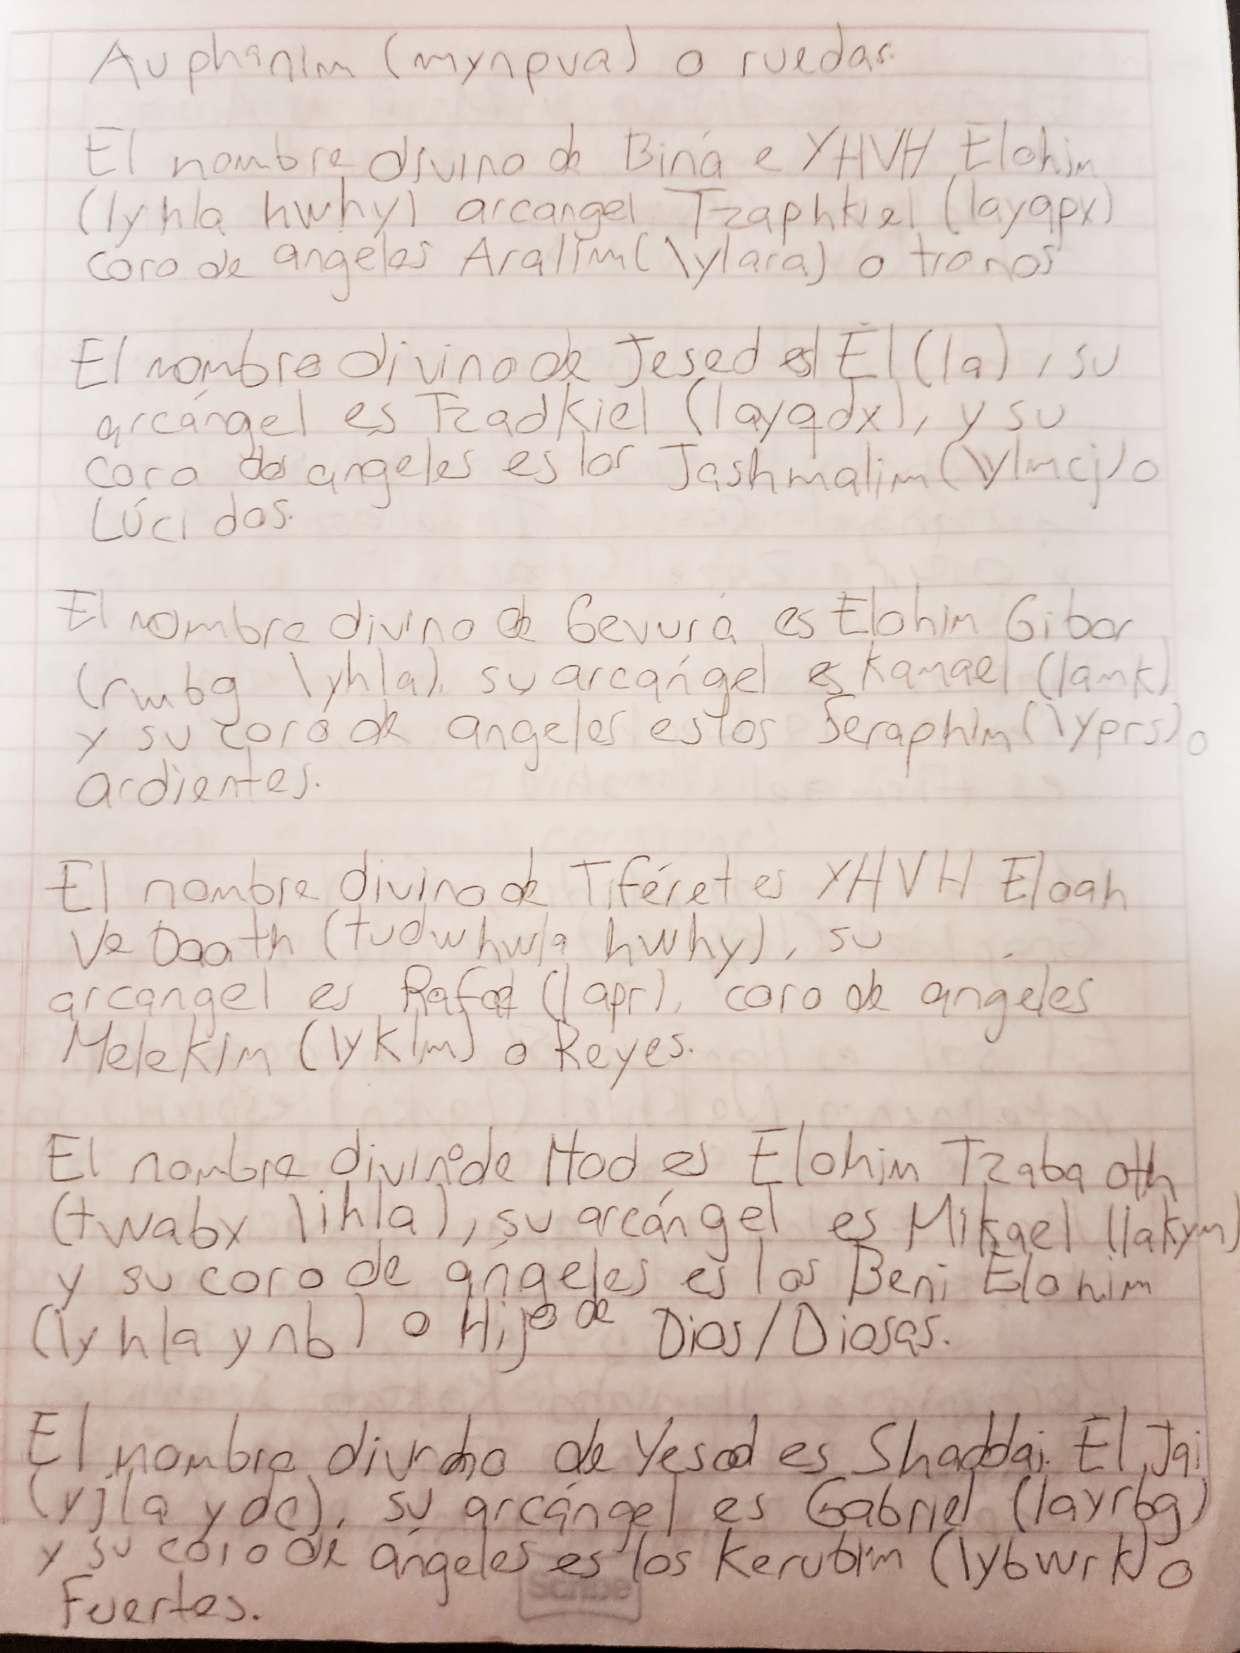 Auphanim (mynpva) o ruedas.
El nombre divino de Biná e YHVH Elohim
(lyhla hwhy) arcangel Tzaphkiel (layqpx)
coro de angeles Aralim (\ylara) o tronos
El nombre divino de Jesed es El (la), su
arcángel es Tzadkiel (layqdx), y su
coro de angeles es los Jashmalim (\ylmcj) o
Lúcidos.
El nombre divino de Gevurá es Elohim Gibor
(rwbg \yhla), su arcángel es Kamael (lamk)
y su coro de angeles es los Seraphim (\yprs) o
ardientes.
El nombre divino de Tiféret es YHVH Eloah
Ve Daath (tudwhwla hwhy), su
arcangel es Rafael (lapr), coro de angeles
Melekim (\yklm) o Reyes.
El nombre divino de Hod es Elohim Tzabaoth
(twabx \ihla), su arcángel es Mikael (lakym)
y su coro de ángeles es los Beni Elohim
(\yhla ynb) o Hijo de Dios/Diosas.
El nombre divino de Yesod es Shaddai El Jai
(yj la ydc), su arcángel es Gabriel (layrbg)
y su coro de ángeles es los Kerubim (\ybwrk) o
Fuertes.
Scribe